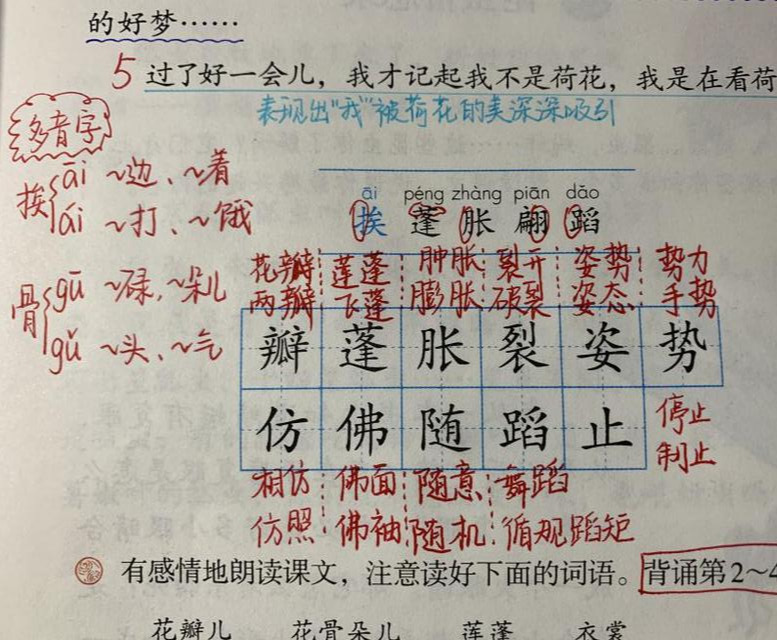 的好梦……
5 过了好一会儿，我才记起我不是荷花，我是在看荷
表现出"我"被荷花的美深深吸引
多音字
挨 āi ~边 ~着
ái ~打、~饿
骨 gū ~碌、~朵儿
gǔ ~头、~气
āi péng zhàng piān dǎo
挨 蓬 胀 翩 蹈
花瓣 莲蓬 肿胀 裂开 姿势 势力
两瓣 飞蓬 膨胀 破裂 姿态 手势
瓣 蓬 胀 裂 姿 势
仿 佛 随 蹈 止
停止
制止
相仿 佛面 随意 舞蹈
仿照 佛袖 随机 循规蹈矩
有感情地朗读课文，注意读好下面的词语。 背诵第2～4
花瓣儿 花骨朵儿 莲蓬 衣裳